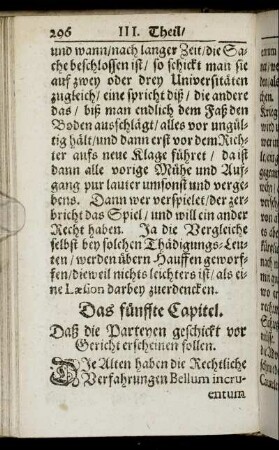 296 III. Theil/
und wann/nach langer Zeit/die Sa-
che beschlossen ist/ so schickt man sie
auf zwey oder drey Universitäten
zugleich/ eine spricht diß/ die andere
das/ biß man endlich dem Faß den
Boden ausschlägt/alles vor ungül-
tig hält/und dann erst vor dem Rich-
ter aufs neue Klage führet/ da ist
dann alle vorige Mühe und Auf-
gang pur lauter umsonst und verge-
bens. Dann wer verspielet/der zer-
bricht das Spiel/ und will ein ander
Recht haben. Ja die Vergleiche
selbst bey solchen Thädigungs-Leu-
ten/ werden übern Hauffen geworf-
fen/dieweil nichts leichters ist/ als ei-
ne Læsion darbey zuerdencken.
Das fünffte Capitel.
Daß die Parteyen geschickt vor
Gericht erscheinen sollen.
DIe Alten haben die Rechtliche
Verfahrungen Bellum incru-
entum